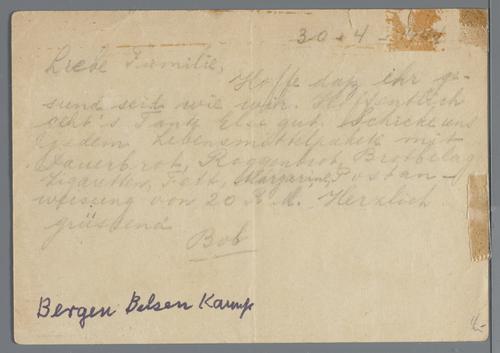 30-4-1944
Liebe Familie,
Hoffe daß ihr ge-
sund seid wie wir. Hoffentlich
geht's Tante Else gut. Schicke uns
Lebensmittelpakete mit
Dauerbrot, Roggenbrot, Brotbelag
Zigaretten, Fett, Margarine, Postan-
weisung von 20 R.M. Herzlich
grüssend
Bob
Bergen Belsen Kamp